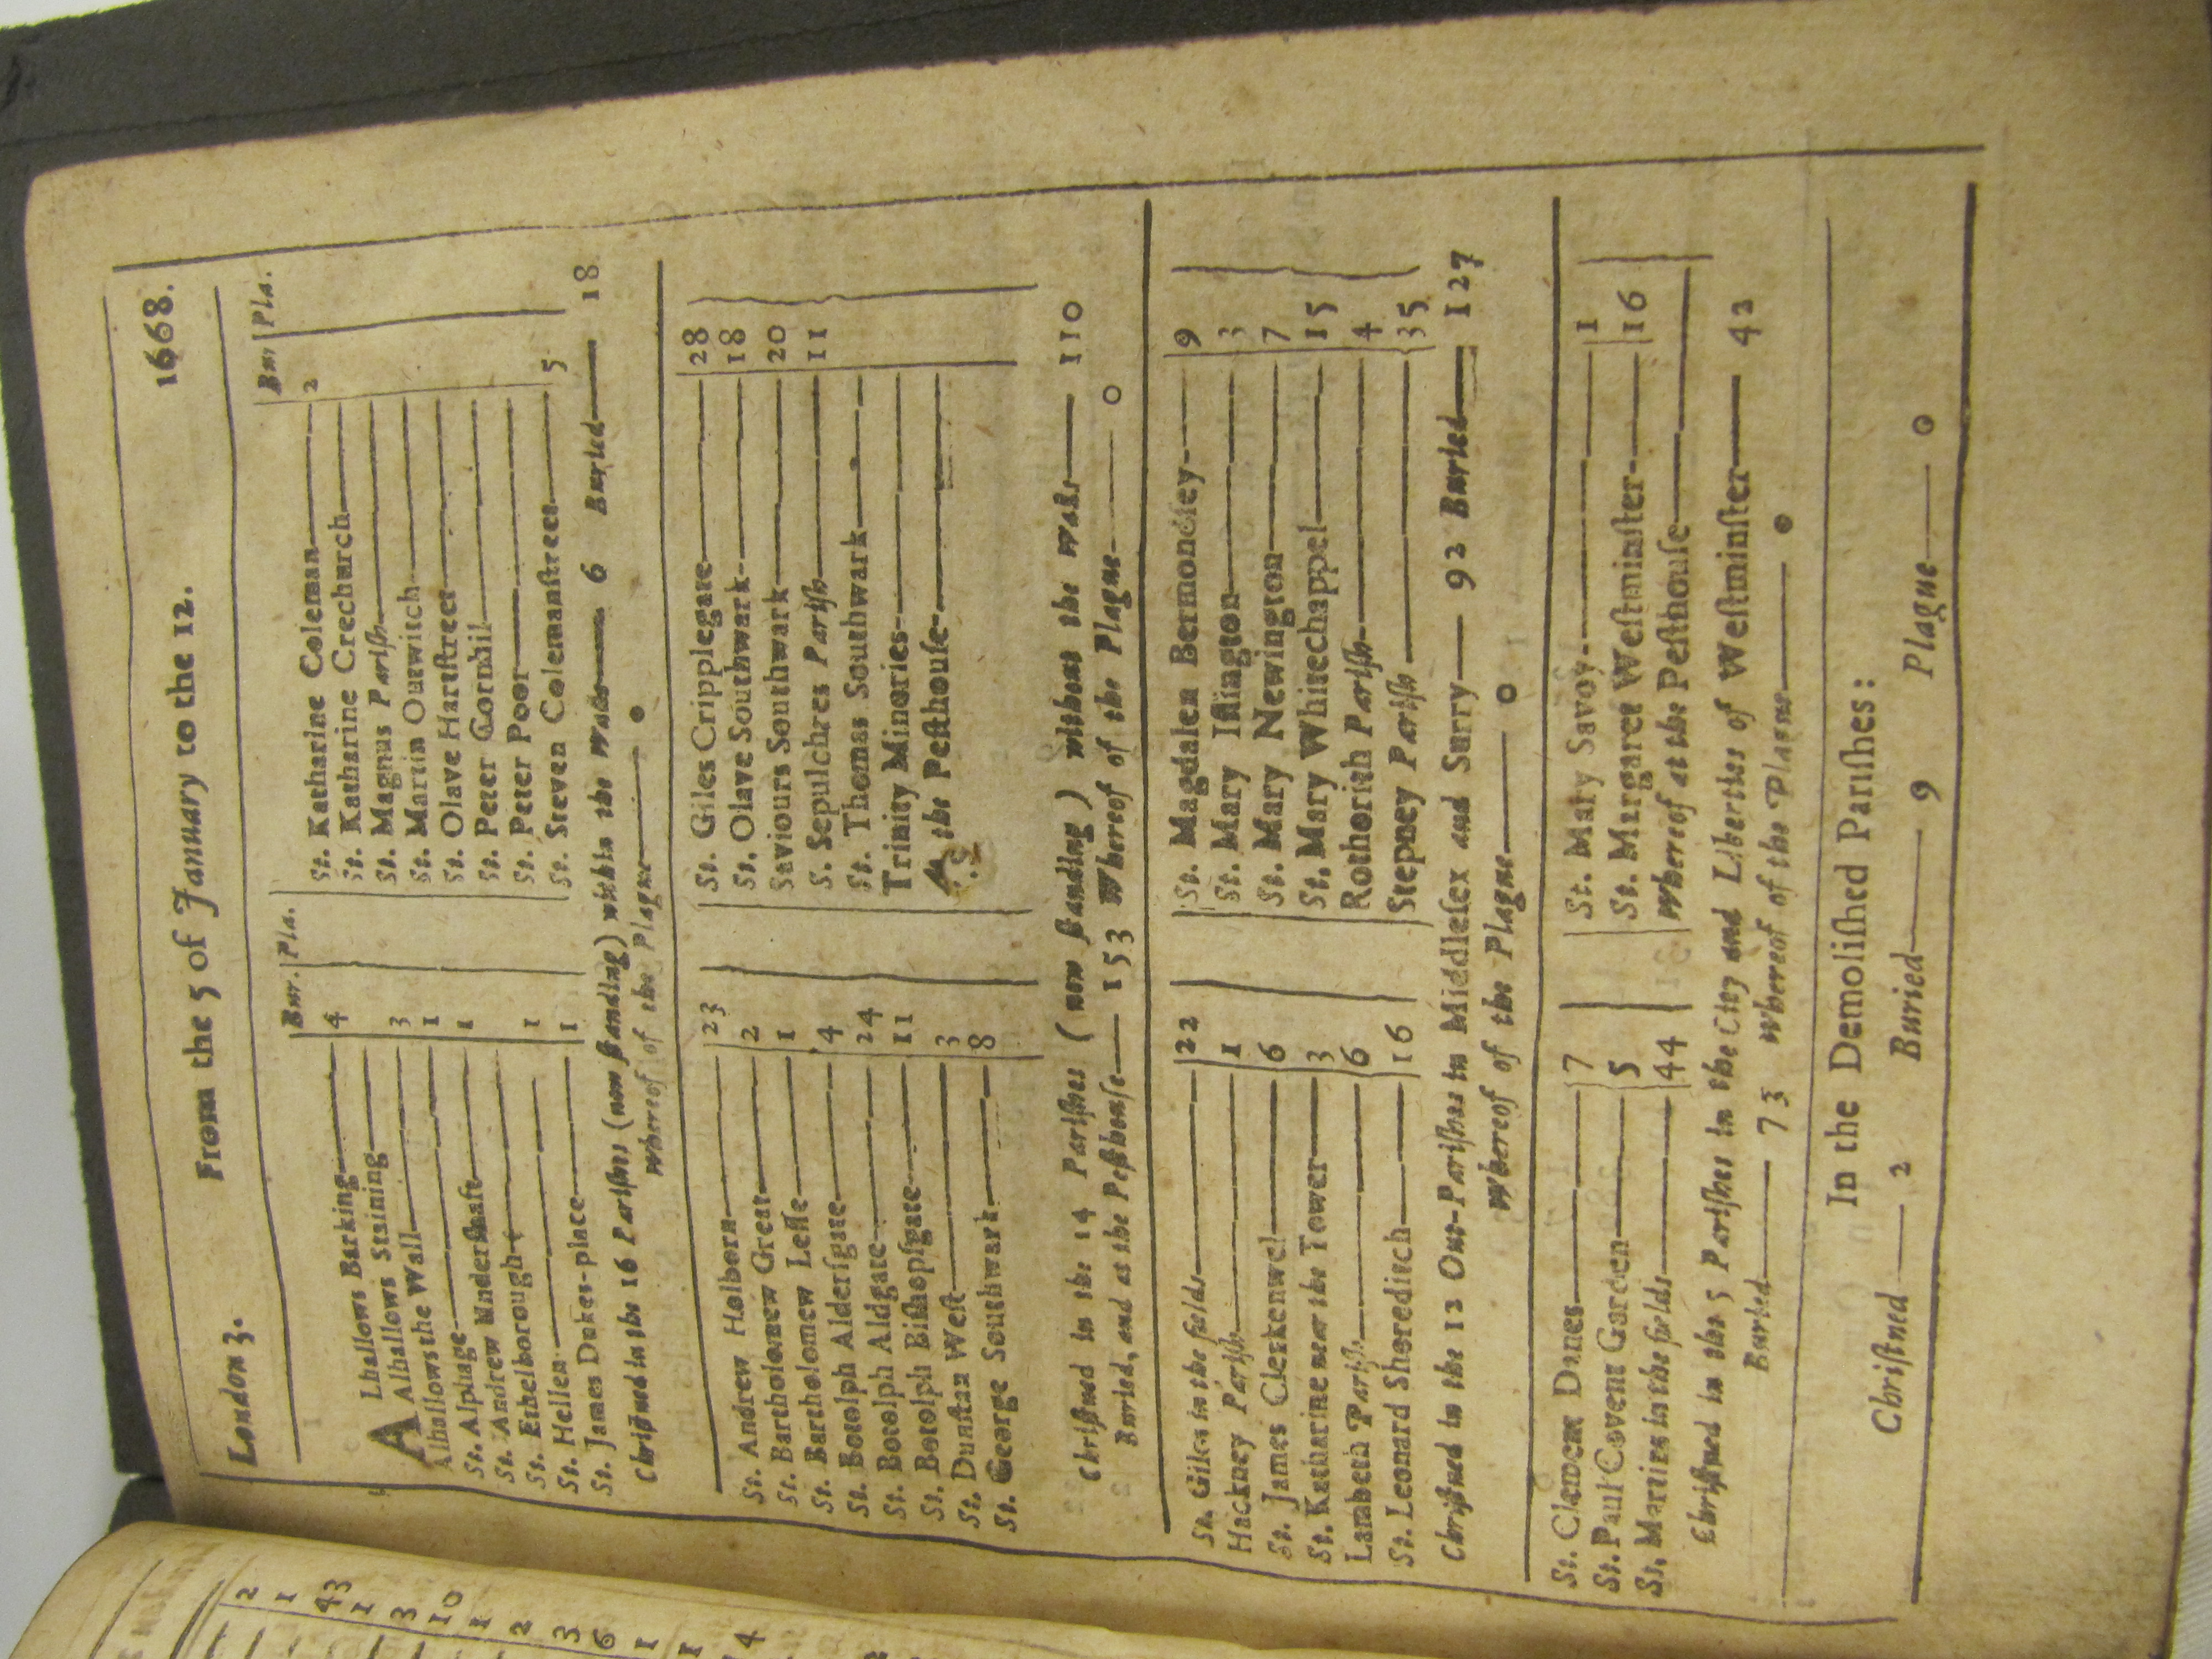 London 3. From the 5 of January to the 12. 1668.
Bur. Pla. Bur Pla.
ALhallows Barking 4
Alhallows Staining
Alhallows the Wall 3
St. Alphage 1
St. Andrew Underſhaft 1
St. Ethelborough
St. Hellen 1
St. James Dukes-place 1
St. Katharine Coleman 2
St. Katharine Creechurch
St. Magnus Pariſh
St. Martin Outwitch
St. Olave Hartſtreet
St. Peter Cornhil
St. Peter Poor
St. Steven Colemanſtreet 5
Chriſtned in the 16 Pariſhes (now ſtanding) within the Walls 6 Buried 18
Whereof of the Plague 0
St. Andrew Holborn 23
St. Bartholomew Great 2
St. Bartholomew Leſſe 1
St. Botolph Alderſgate 4
St. Botolph Aldgate 24
St. Botolph Biſhopſgate 11
St. Dunſtan Weſt 3
St. George Southwark 8
St. Giles Cripplegate 28
St. Olave Southwark 18
Saviours Southwark 20
S. Sepulchres Pariſh 11
St. Thomas Southwark
Trinity Minories
At the Peſthouſe
Chriſtned in the 14 Pariſhes (now ſtanding) without the Walls 110
Buried, and at the Peſthouſe 153 Whereof of the Plague 0
St. Giles in the fields 22
Hackney Pariſh 1
St. James Clerkenwel 6
St. Katharine near the Tower 3
Lambeth Pariſh 6
St. Leonard Shoreditch 16
St. Magdalen Bermondſey 9
St. Mary Iſlington 3
St. Mary Newington 7
St. Mary Whitechappel 15
Rothorith Pariſh 4
Stepney Pariſh 35
Chriſtned in the 12 Out-Pariſhes in Middleſex and Surry 92 Buried 127
Whereof of the Plague 0
St. Clement Danes 7
St. Paul Covent Garden 5
St. Martins in the fields 44
St. Mary Savoy 1
St. Margaret Weſtminſter 16
Whereof at the Peſthouſe
Chriſtned in the 5 Pariſhes in the City and Liberties of Weſtminſter 42
Buried 73 Whereof of the Plague 0
In the Demoliſhed Pariſhes:
Chriſtned 2 Buried 9 Plague 0
2
1
43
1
3
10
1
2
3
6
1
1
4